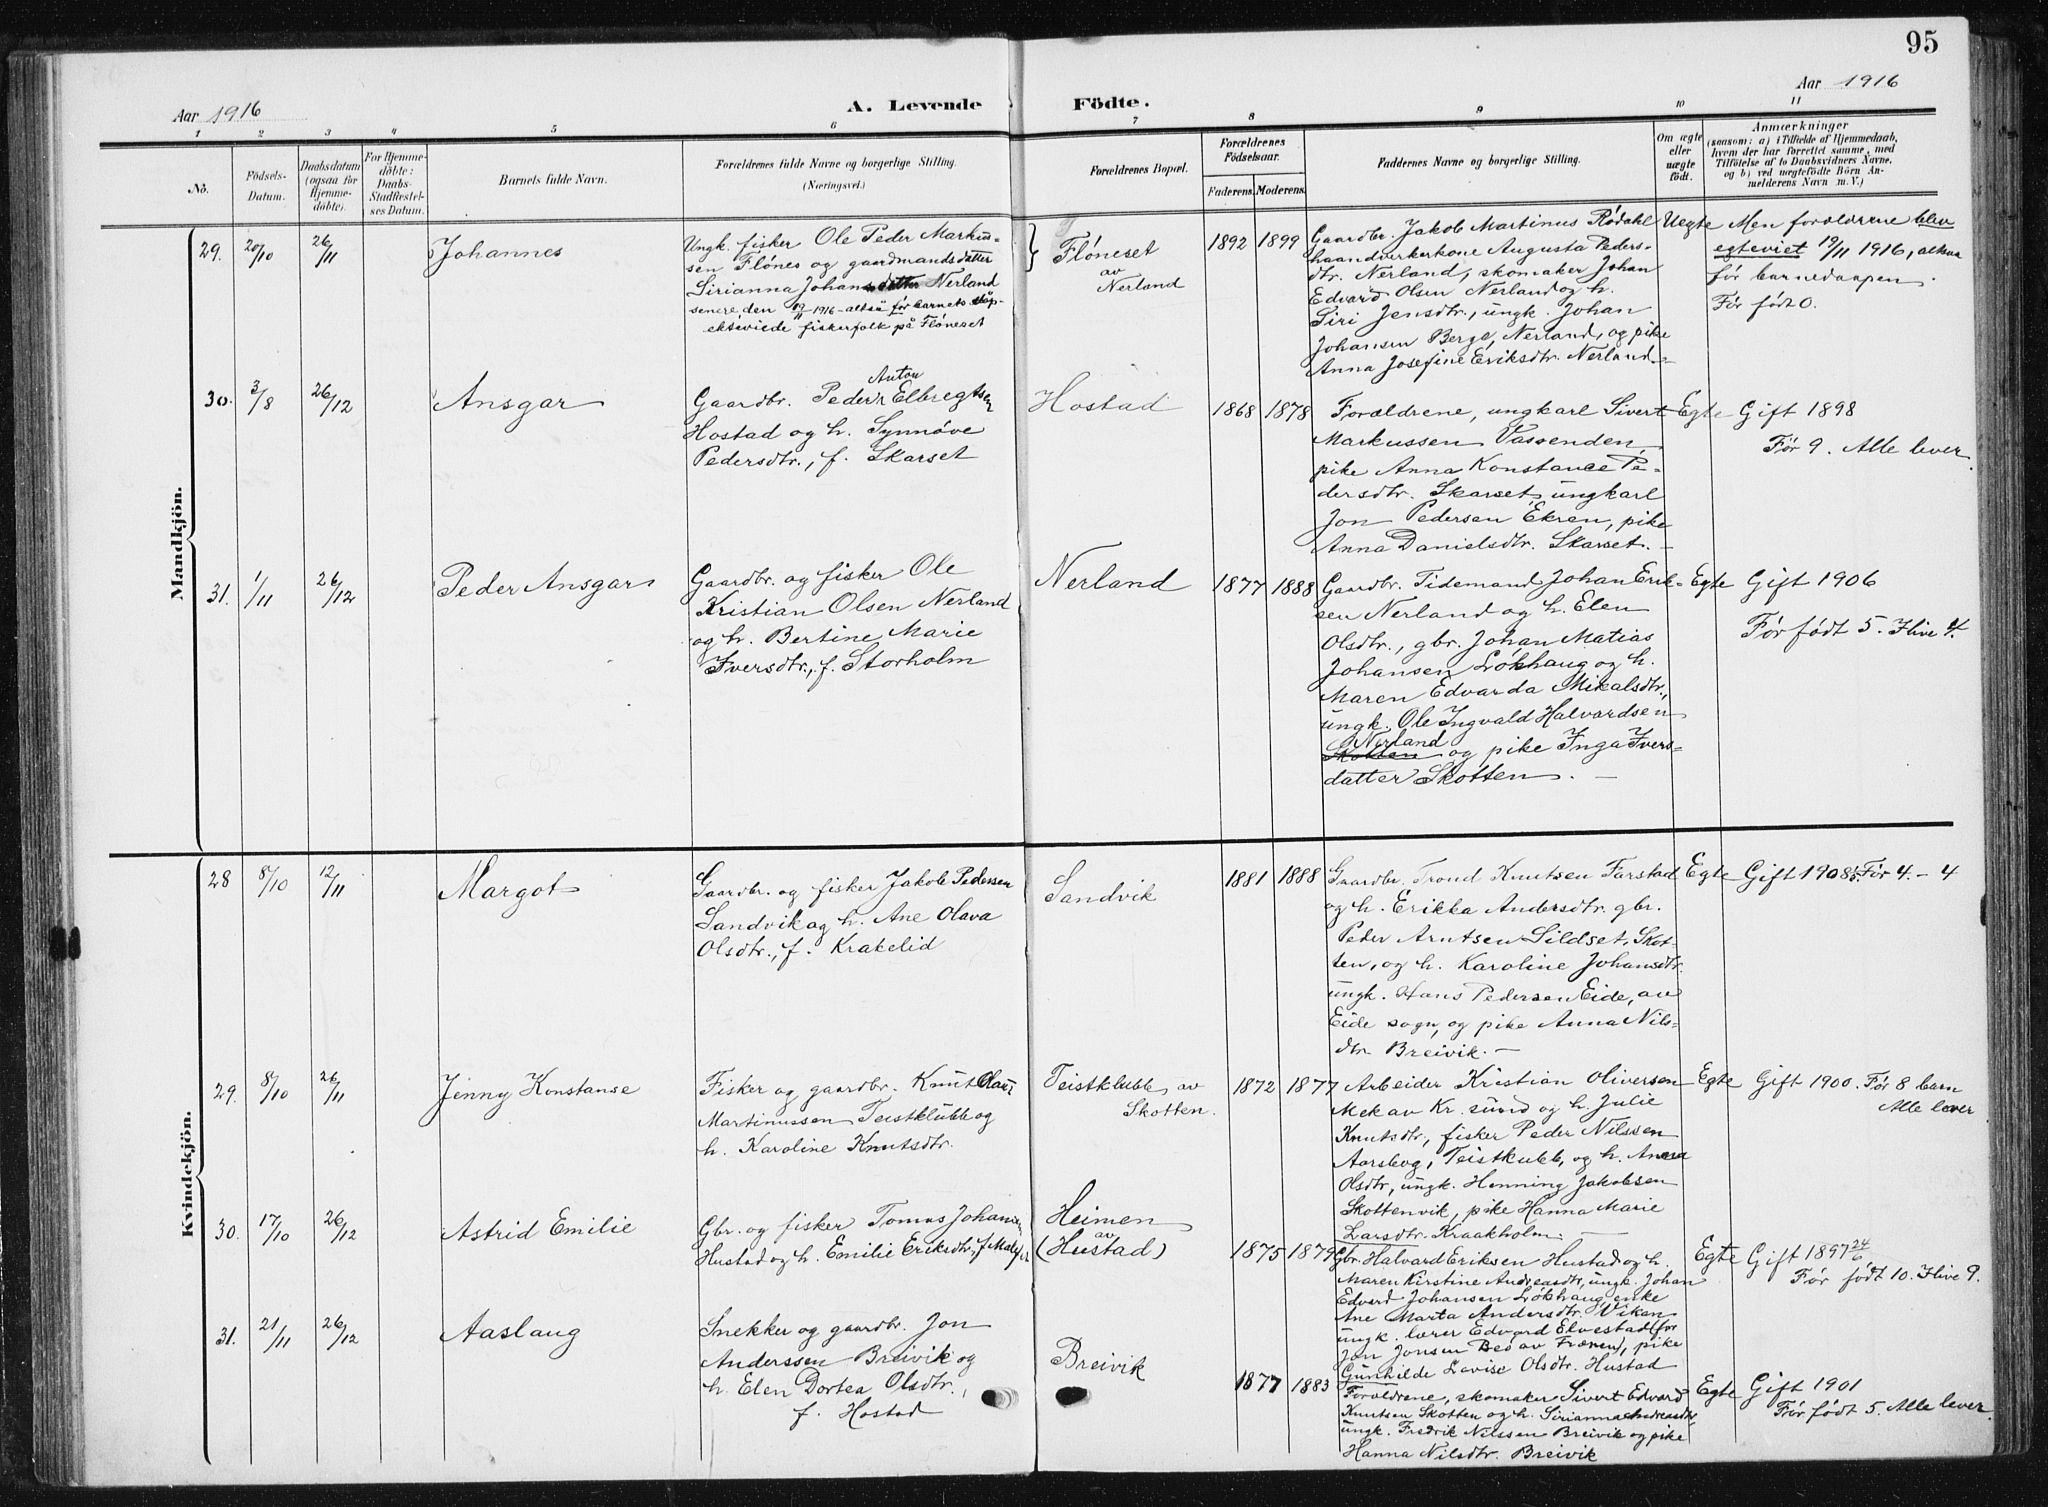 95
Aar 1916
A. Levende Födte.
Aar 1916
1 2 3 4 5 6 7 8 9 10 11
No.
Födsels-
Datum.
Daabsdatum
(ogsaa for
Hjemme-
döbte).
For Hjemme-
döbte:
Daabs-
Stadfæstel-
ses Datum.
Barnets fulde Navn.
Forældrenes fulde Navne og borgerlige Stilling.
(Næringsvei.)
Forældrenes Bopæl.
Forældrenes
Födselsaar.
Faderens. Moderens.
Faddernes Navne og borgerlige Stilling.
Om ægte
eller
uægte
födt.
Anmærkninger
(saasom: a) i Tilfælde af Hjemmedaab,
hvem der har forrettet samme, med
Tilföielse af to Daabsvidners Navne,
og b) ved uægtefödte Börn An-
melderens Navn m. V.)
Mandkjön.
29. 20/10 26/11 Johannes
Ungk. fisker Ole Peder Markus-
sen Flónes og gaardmandsdatter
Sirianna Johansdatter Nerland
senere, den 19/11 1916 - altså før barnets dåp -
ektеviede fiskerfolk på Flóneset
Flóneset
av
Nerland
1892 1899
Gaardbr. Jakob Martinus Ródahl
haandverkerkone Augusta Peders-
dtr. Nerland, skomaker Johan
Edvard Olsen Nerland og h.
Siri Jensdtr., ungk. Johan
Johansen Berge, Nerland, og pike
Anna Josefine Eriksdtr. Nerland.-
Uegte
Men forældrene blev
egteviet 19/11 1916, altsaa
før barnedaapen.
Før født 0.
30. 3/8 26/12 Ansgar
Anton
Gaardbr. Peder Elbregtsen
Hostad og h. Synnøve
Pedersdtr., f. Skarset
Hostad
1868 1878
Forældrene, ungkarl Sivert
Markussen Vassenden,
pike Anna Konstance Pe-
dersdtr. Skarset, ungkarl
Jon Pedersen Ekren, pike
Anna Danielsdtr. Skarset.-
Egte
Gift 1898
Før 9. Alle lever.
31. 1/11 26/12 Peder Ansgar
Gaardbr. og fisker Ole
Kristian Olsen Nerland
og h. Bertine Marie
Iversdtr., f. Storholm
Nerland
1877 1888
Gaardbr. Tidemand Johan Erik-
sen Nerland og h. Elen
Olsdtr., gbr. Johan Matias
Johansen Lókhaug og h.
Maren Edvarda Mikalsdtr.,
ungk. Ole Ingvald Halvardsen
Nerland
Skotten og pike Inga Ivers-
datter Skotten. -
Egte
Gift 1906
Før født 5. I live 4.
Kvindekjön.
28 8/10 12/11 Margot
Gaardbr. og fisker Jakob Pedersen
Sandvik og h. Ane Olava
Olsdtr., f. Krakelid
Sandvik
1881 1888
Gaardbr. Trond Knutsen Farstad
og h. Erikka Andersdtr. gbr.
Peder Arntsen Sildset, Skot-
ten, og h. Karoline Johansdtr.
ungk. Hans Pedersen Eide, av
Eide sogn, og pike Anna Nils-
dtr. Breivik. -
Egte
Gift 1908. Før 4. - 4
29. 8/10 26/11 Jenny Konstanse
Fisker og gaardbr. Knut Olaus
Martinussen Teistklubb og
h. Karoline Knutsdtr.
Teistklubb av
Skotten.
1872 1877
Arbeider Kristian Oliversen
Mek av Kr.sund og h. Julie
Knutsdtr., fisker Peder Nilssen
Aarsbog, Teistkubb, og h. Anna
Olsdtr, ungk. Henning Jakobsen
Skottenvik, pike Hanna Marie
Larsdtr. Kraakholm. -
Egte
Gift 1900. Før 8 barn
Alle lever
30. 17/10 26/12 Astrid Emilie
Gbr. og fisker Tomas Johansen
Hustad og h. Emilie Eriksdtr.,
Heimen
av
(Hustad)
1875 1879
Gbr. Halvard Eriksen Hustad og h.
Maren Kirstine Andreasdtr, ungk. Johan
Edvard Johansen Lókhaug, enke
Ane Marta Andersdtr. Viken
ungk. lærer Edvard Elvestad (for
Jon Jonsen Bed av Frænen), pike
Gunhilde Lovise Olsdtr. Hustad
Egte
Gift 1897 24/6
Før født 10. I live 9.
31. 21/11 26/12 Aaslaug
Snekker og gaardbr. Jon
Anderssen Breivik og
h. Elen Dortea Olsdtr.,
f. Hostad
Breivik
1877 1883
Forældrene, skomaker Sivert Edvard
Knutsen Skotten og h. Sirianna Andreasdtr,
ungk. Fredrik Nilssen Breivik og pike
Hanna Nilsdtr. Breivik
Egte
Gift 1901
Før født 5. Alle lever.